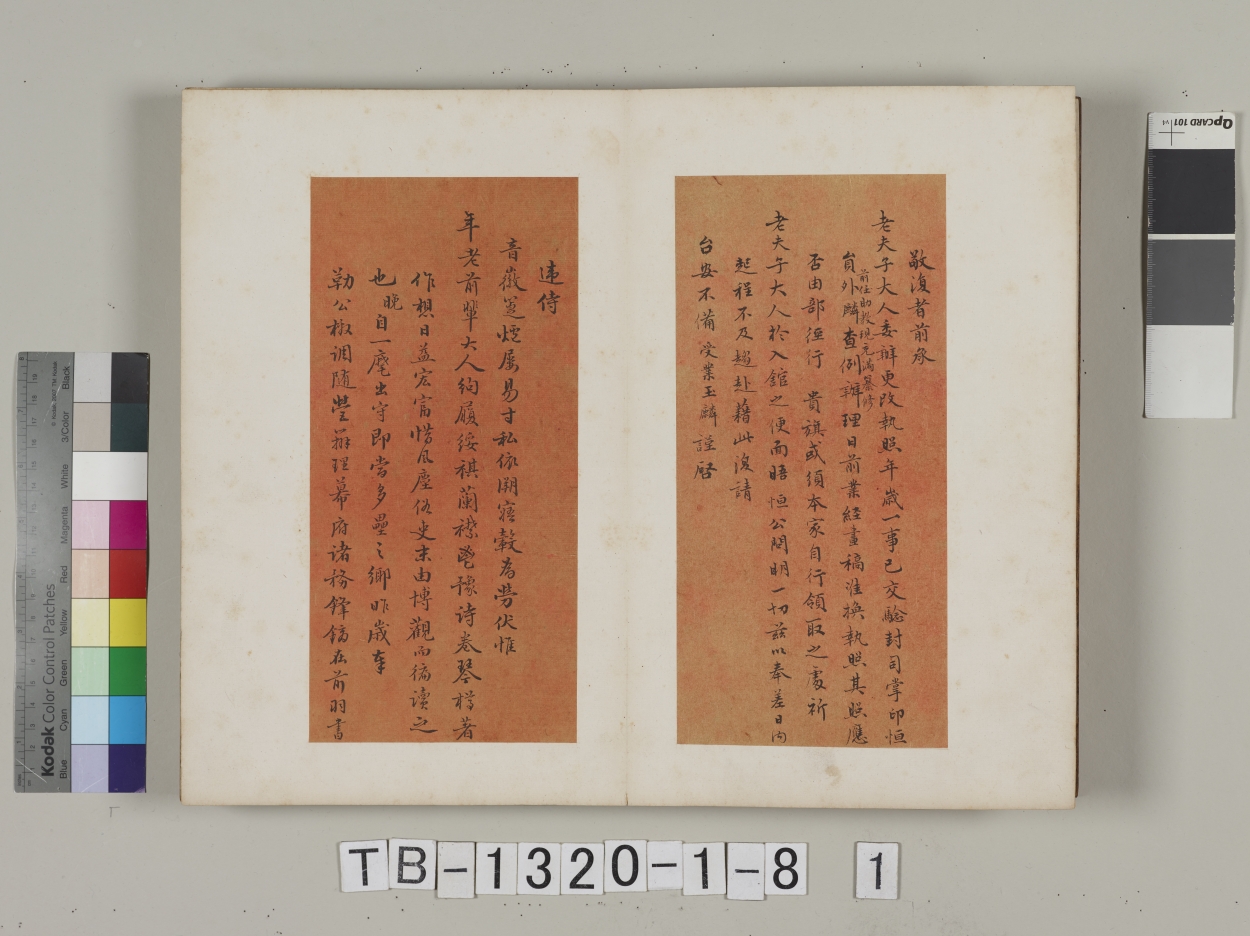 敬復者前承
老夫子大人委辦更改執照年歲一事已交驗封司掌印恒
員外麟查例辦理日前業経畫稿准換執照其照應
前任助教現充滿纂修
否由部径行 貴旗或須本家自行領取之處祈
老夫子大人於入館之便而晤 恒公問明一切茲以奉差日內
起程不及趨赴藉此復請
台安不備 受業玉麟 謹啓
違侍
音徽荏煙屢易寸私依溯寤轂為勞伏惟
年老前軰大人絢履綏祺蘭襟鬯豫詩卷琴樽著
作想日益宏富惜風塵俗吏末由博觀而徧讀之
也晚自一麾出守即當多壘之鄉昨歲奉
勒公檄調隨營辦理幕府諸務鋒鏑在前羽書
TB-1320-1-8 1
QPCARD 101 v4
Kodak Color Control Patches
© Kodak, 2007 TM: Kodak
Blue
Cyan
Green
Yellow
Red
Magenta
White
3/Color
Black